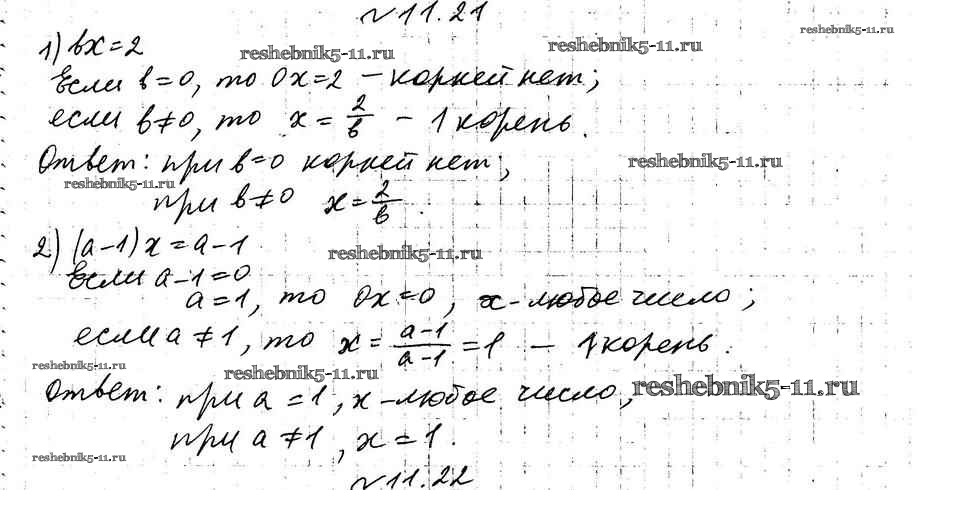 №11.21
1) bx=2
reshebnik5-11.ru reshebnik5-11.ru reshebnik5-11.ru
Если b=0, то 0x=2 – корней нет;
если b≠0, то x=2/b – 1 корень.
Ответ: при b=0 корней нет; reshebnik5-11.ru
reshebnik5-11.ru
при b≠0 x=2/b.
2) (a-1)x=a-1 reshebnik5-11.ru
Если a-1=0
a=1, то 0x=0, x-любое число;
если a≠1, то x=(a-1)/(a-1)=1 – 1 корень.
reshebnik5-11.ru reshebnik5-11.ru reshebnik5-11.ru
Ответ: при a=1, x-любое число,
при a≠1, x=1.
reshebnik5-11.ru
№11.22